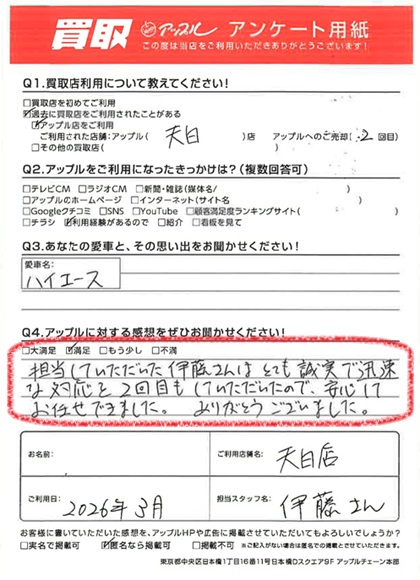 買取 アップル アンケート用紙
この度は当店をご利用いただきありがとうございます!
Q1.買取店利用について教えてください!
□買取店を初めてご利用
☑過去に買取店をご利用されたことがある
☑アップル店をご利用
ご利用された店舗:アップル( 天白 )店 アップルへのご売却( 2 回目)
□その他の買取店( )
Q2.アップルをご利用になったきっかけは?(複数回答可)
□テレビCM □ラジオCM □新聞・雑誌(媒体名/ )
□アップルのホームページ □インターネット(サイト名 )
□Googleクチコミ □SNS □YouTube □顧客満足度ランキングサイト( )
□チラシ ☑利用経験があるので □紹介 □看板を見て
Q3.あなたの愛車と、その思い出をお聞かせください!
愛車名:
ハイエース
Q4.アップルに対する感想をぜひお聞かせください!
□大満足 ☑満足 □もう少し □不満
担当していただいた伊藤さんはとても誠実で迅速
な対応と2回目もしていただいたので、安心して
お任せできました。 ありがとうございました。
お名前: ご利用店舗名: 天白店
ご利用日: 2026年3月 担当スタッフ名: 伊藤さん
お客様に書いていただいた感想を、アップルHPや広告に掲載させていただいてもよろしいでしょうか?
□実名で掲載可 ☑匿名なら掲載可 □掲載不可 ※ご記入がない場合は匿名での掲載とさせていただきます。
東京都中央区日本橋1丁目16番11号日本橋Dスクエア5F アップルチェーン本部